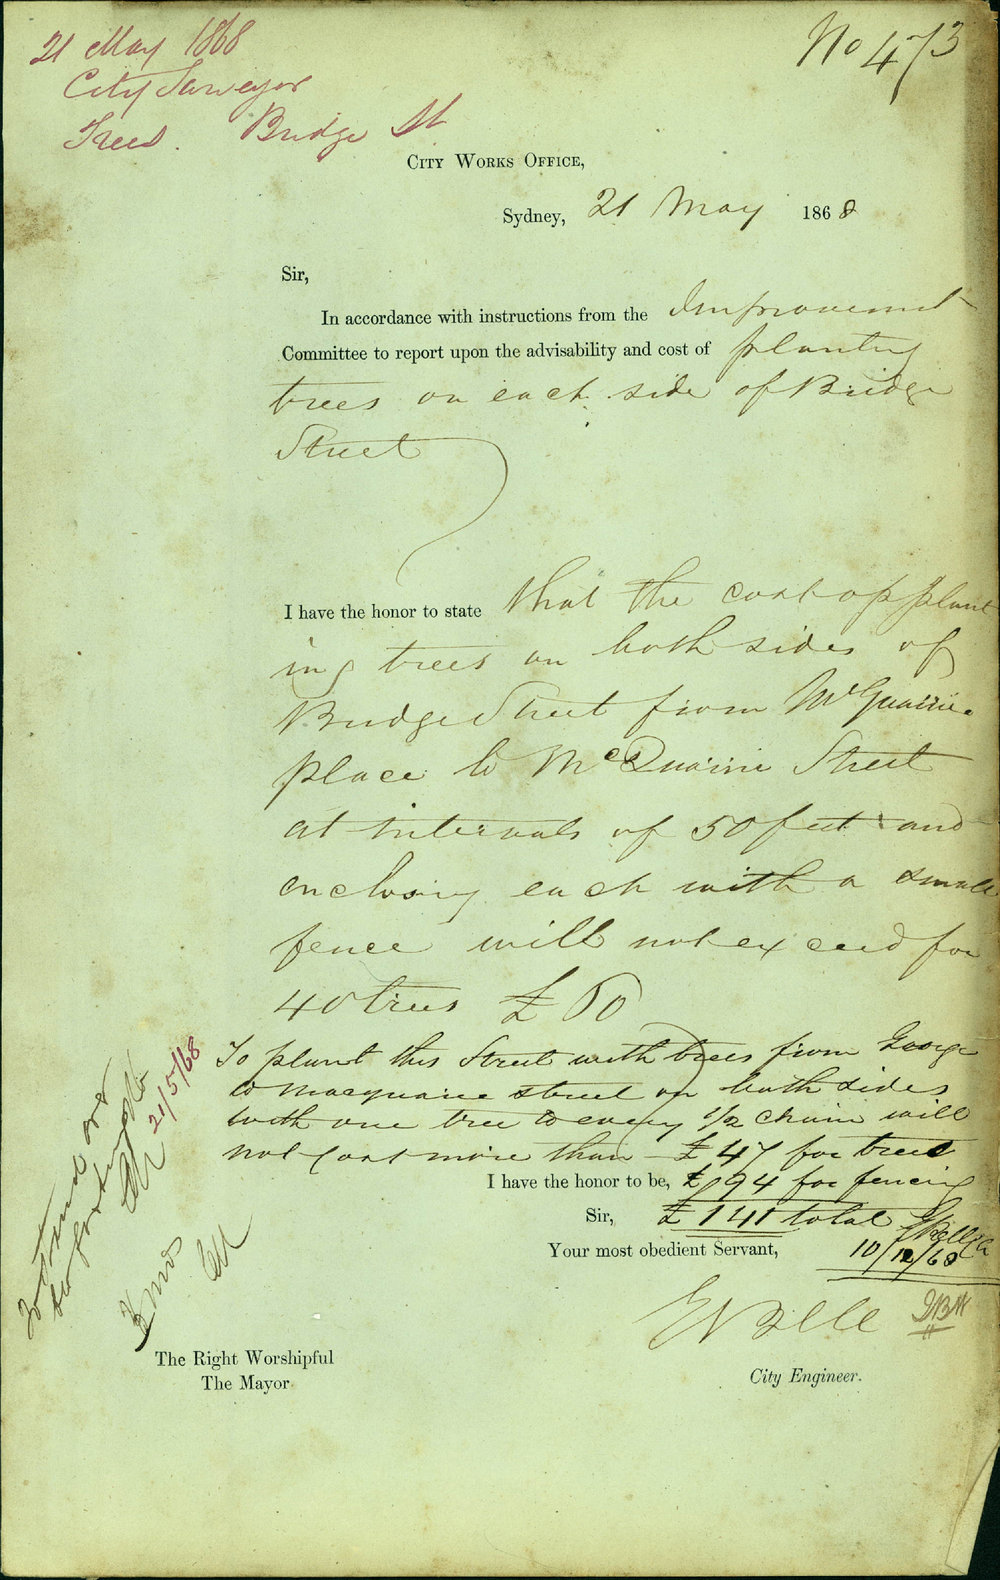 21 May 1868
City Surveyor
Trees. Bridge St
No 473
City Works Office,
Sydney, 21 May 1868
Sir,
In accordance with instructions from the Improvement
Committee to report upon the advisability and cost of planting
trees on each side of Bridge
Street
I have the honor to state that the cost of plant
ing trees on both sides of
Bridge Street from McQuairie
place to McQuairie Street
at intervals of 50 feet and
enclosing each with a small
fence will not exceed for
40 trees £60
To plant this Street with trees from George
to Macquarie street on both sides
with one tree to every 1/2 chain will
not cost more than £47 for trees
I have the honor to be, £94 for fencing
Sir, £141 total
10/12/68
Your most obedient Servant,
E Bell
City Engineer.
The Right Worshipful
The Mayor
21/5/68